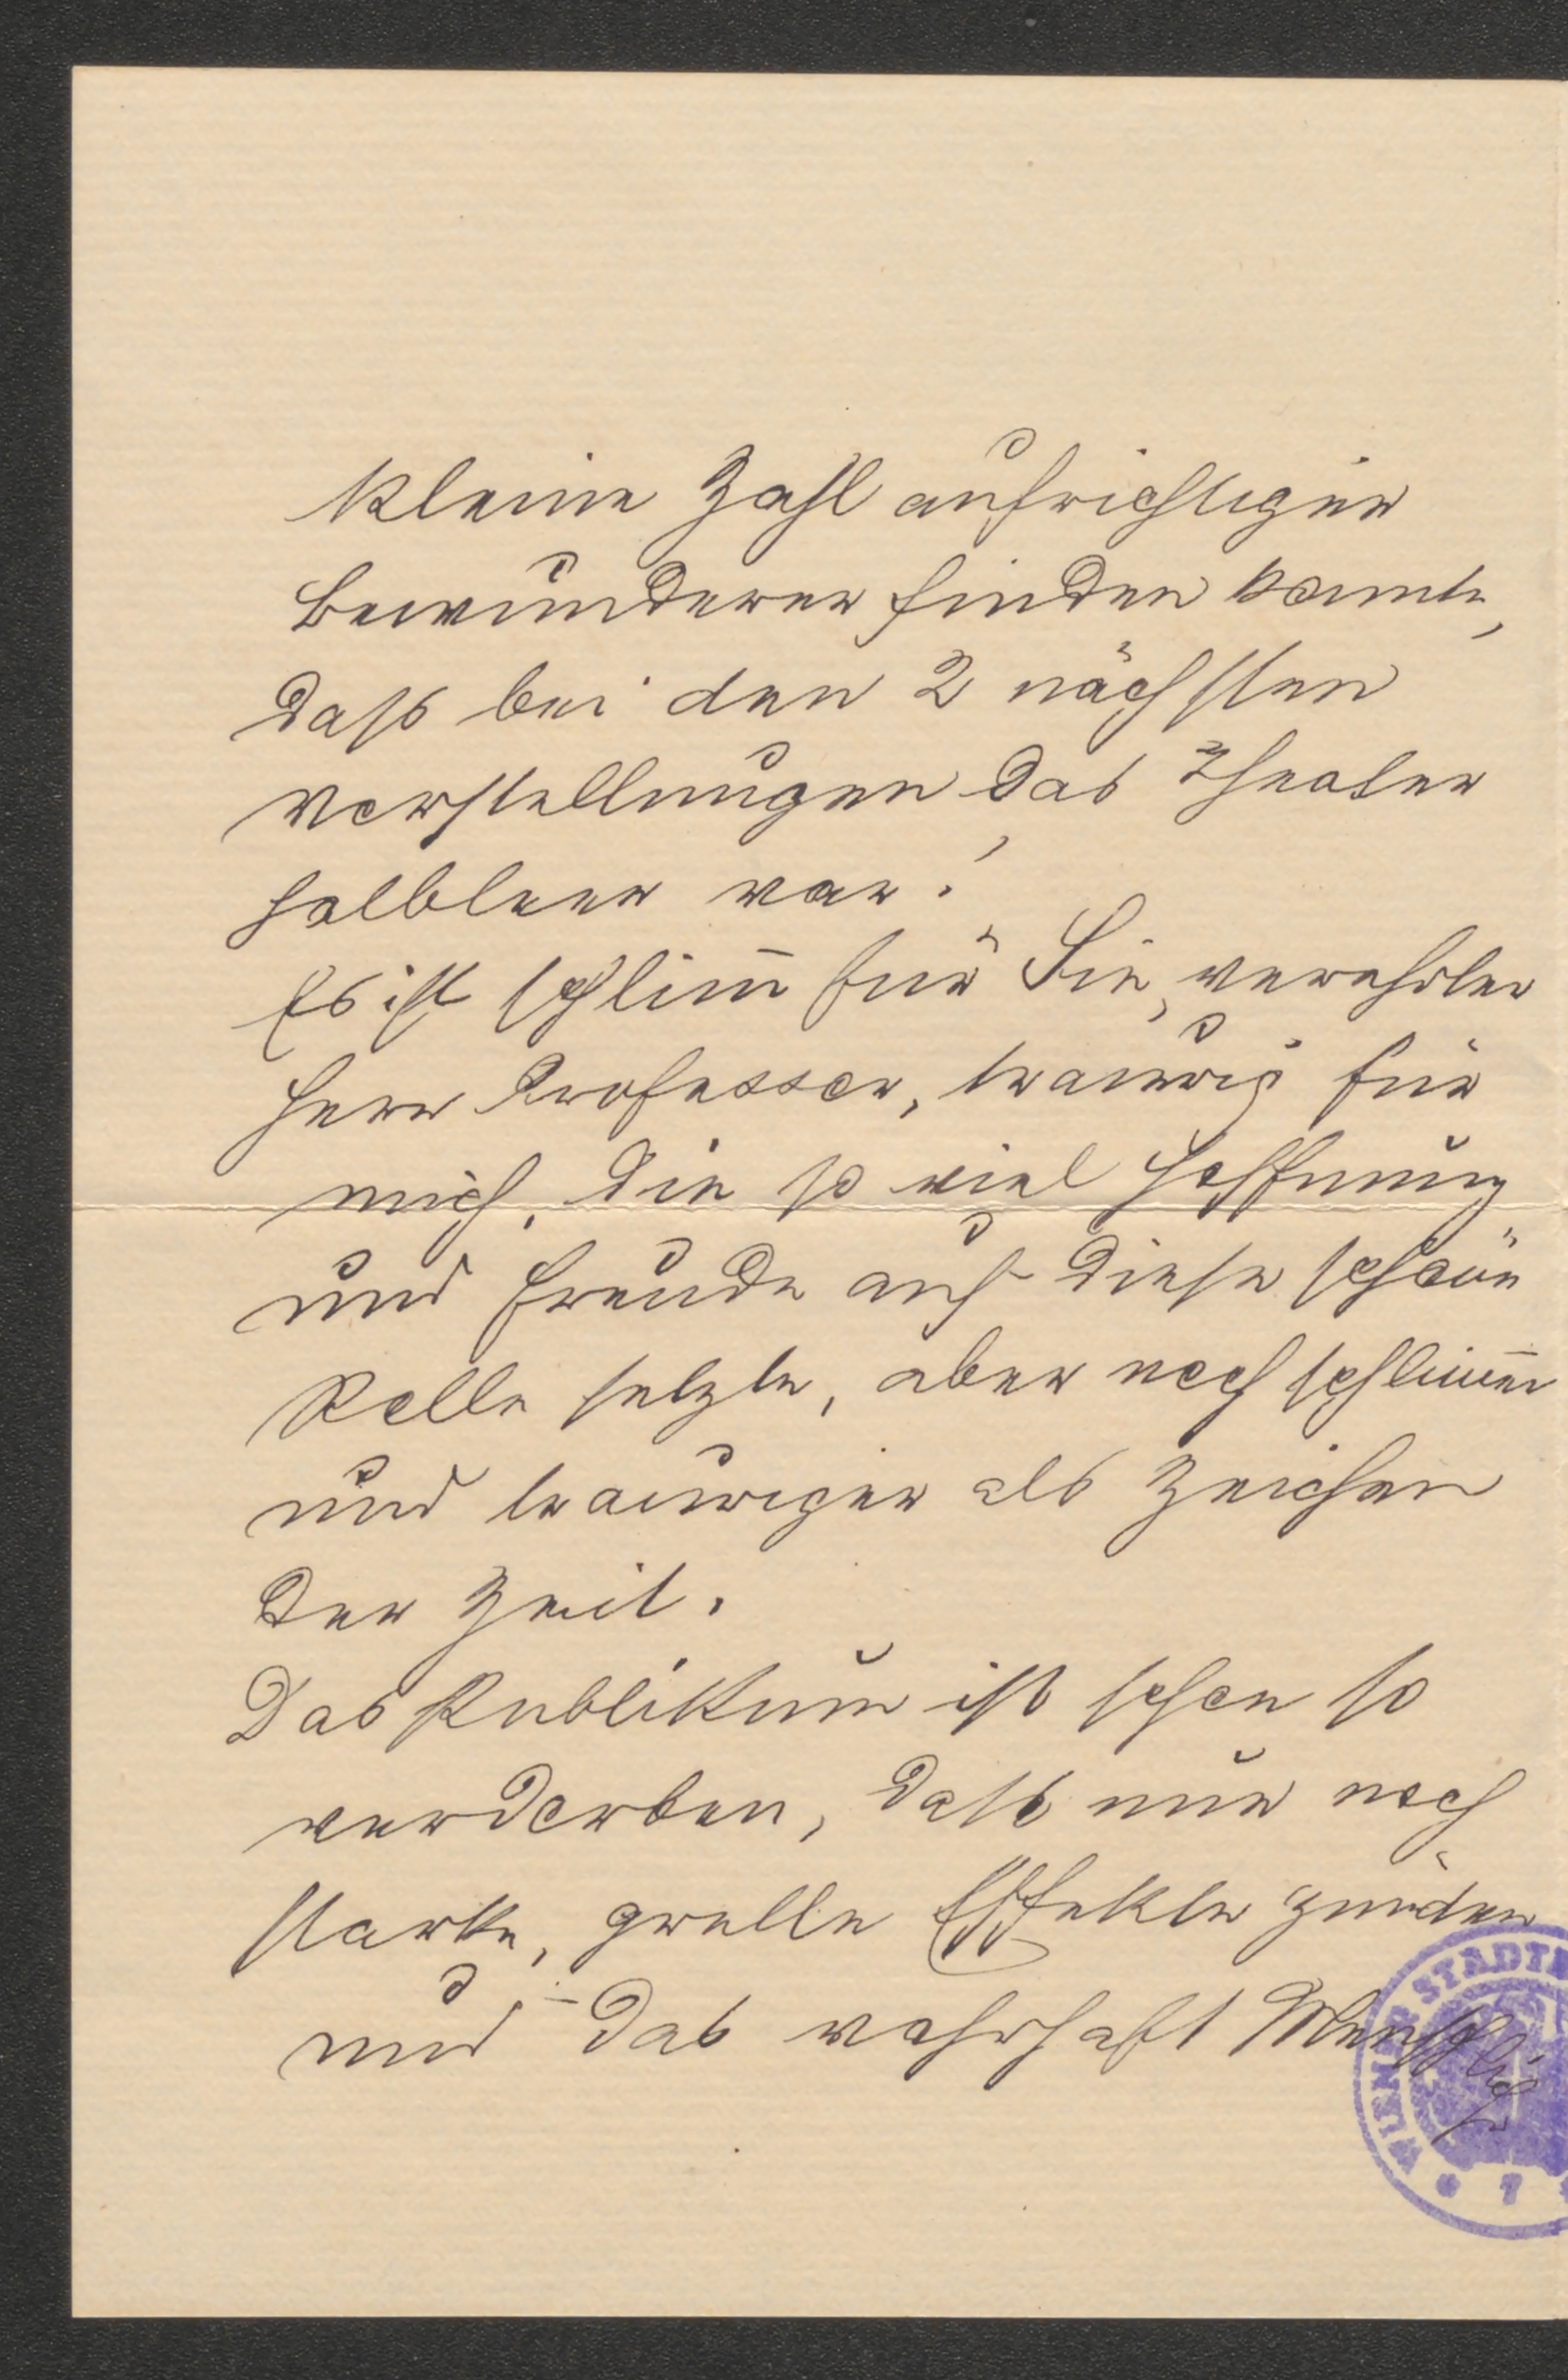 kleine Zahl aufrichtiger
Bewunderer finden konnte,
daß bei den 2 nächsten
Vorstellungen das Theater
halbleer war!
Es ist schlim̅ für Sie, verehrter
Herr Professor, traurig für
mich, die so viel Hoffnung
und Freude auf diese schöne
Rolle setzte, aber noch schlim̅er
und trauriger als Zeichen
der Zeit.
Das Publikum ist schon so
verdorben, daß nur noch
starke, grelle Effekte zünden
und das wahrhaft Menschliche
WIENER STADT
7